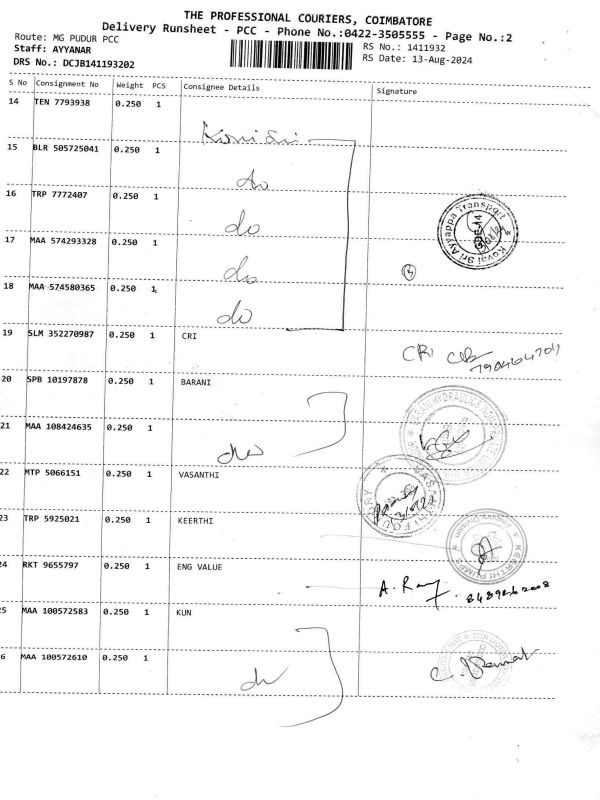 THE PROFESSIONAL COURIERS, COIMBATORE
Delivery Runsheet - PCC - Phone No.:0422-3505555 - Page No.:2
Route: MG PUDUR PCC
RS No.: 1411932
Staff: AYYANAR
RS Date: 13-Aug-2024
DRS No.: DCJB141193202
S No Consignment No Weight PCS Consignee Details Signature
14 TEN 7793938 0.250 1
15 BLR 505725041 0.250 1 do
16 TRP 7772407 0.250 1 do
Kovai Sri Ayyappa Transport
17 MAA 574293328 0.250 1 do
18 MAA 574580365 0.250 1 do
19 SLM 352270987 0.250 1 CRI CRI
20 SPB 10197878 0.250 1 BARANI
21 MAA 108424635 0.250 1 do
22 MTP 5066151 0.250 1 VASANTHI
VASANTHI FOUNDRY
23 TRP 5925021 0.250 1 KEERTHI
KEERTHI PUMPS
24 RKT 9655797 0.250 1 ENG VALUE
25 MAA 100572583 0.250 1 KUN
6 MAA 100572610 0.250 1 do